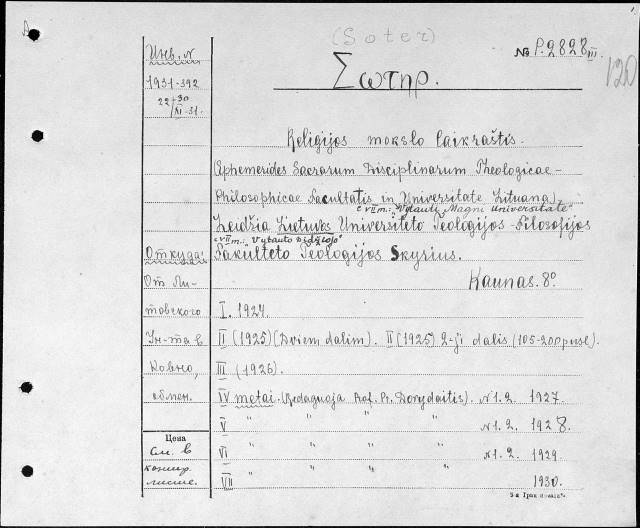 (Soter)
№ P.2828 III.
120
Σωτηρ.
Инв. №
1931-392
22/30 XI-31.
Religijos mokslo laikraštis.
(Ephemerides Sacrarum Disciplinarum Theologicae-
Philosophicae Facultatis in Universitate Lituana)
c VII m.: "Vytauti Magni Universitate"
Leidžia Lietuvos Universiteto Teologijos-Filosofijos
c VII m.: "Vytauto Didžiojo"
Fakulteto Teologijos Skyrius.
Kaunas. 8°
Откуда:
От Ли-
товского
Ин-та в
Ковно,
обмен.
I. 1924.
II (1925) (Dviem dalim). II (1925) 2-ji dalis (105-200 pusl).
III (1926).
IV metai. (Redaguoja Prof. Pr. Dovydaitis). N 1. 2. 1927.
V " " " N 1. 2. 1928.
VI " " " N 1. 2. 1929.
VII " " " 1930.
Цена
См. в
копир.
листе.